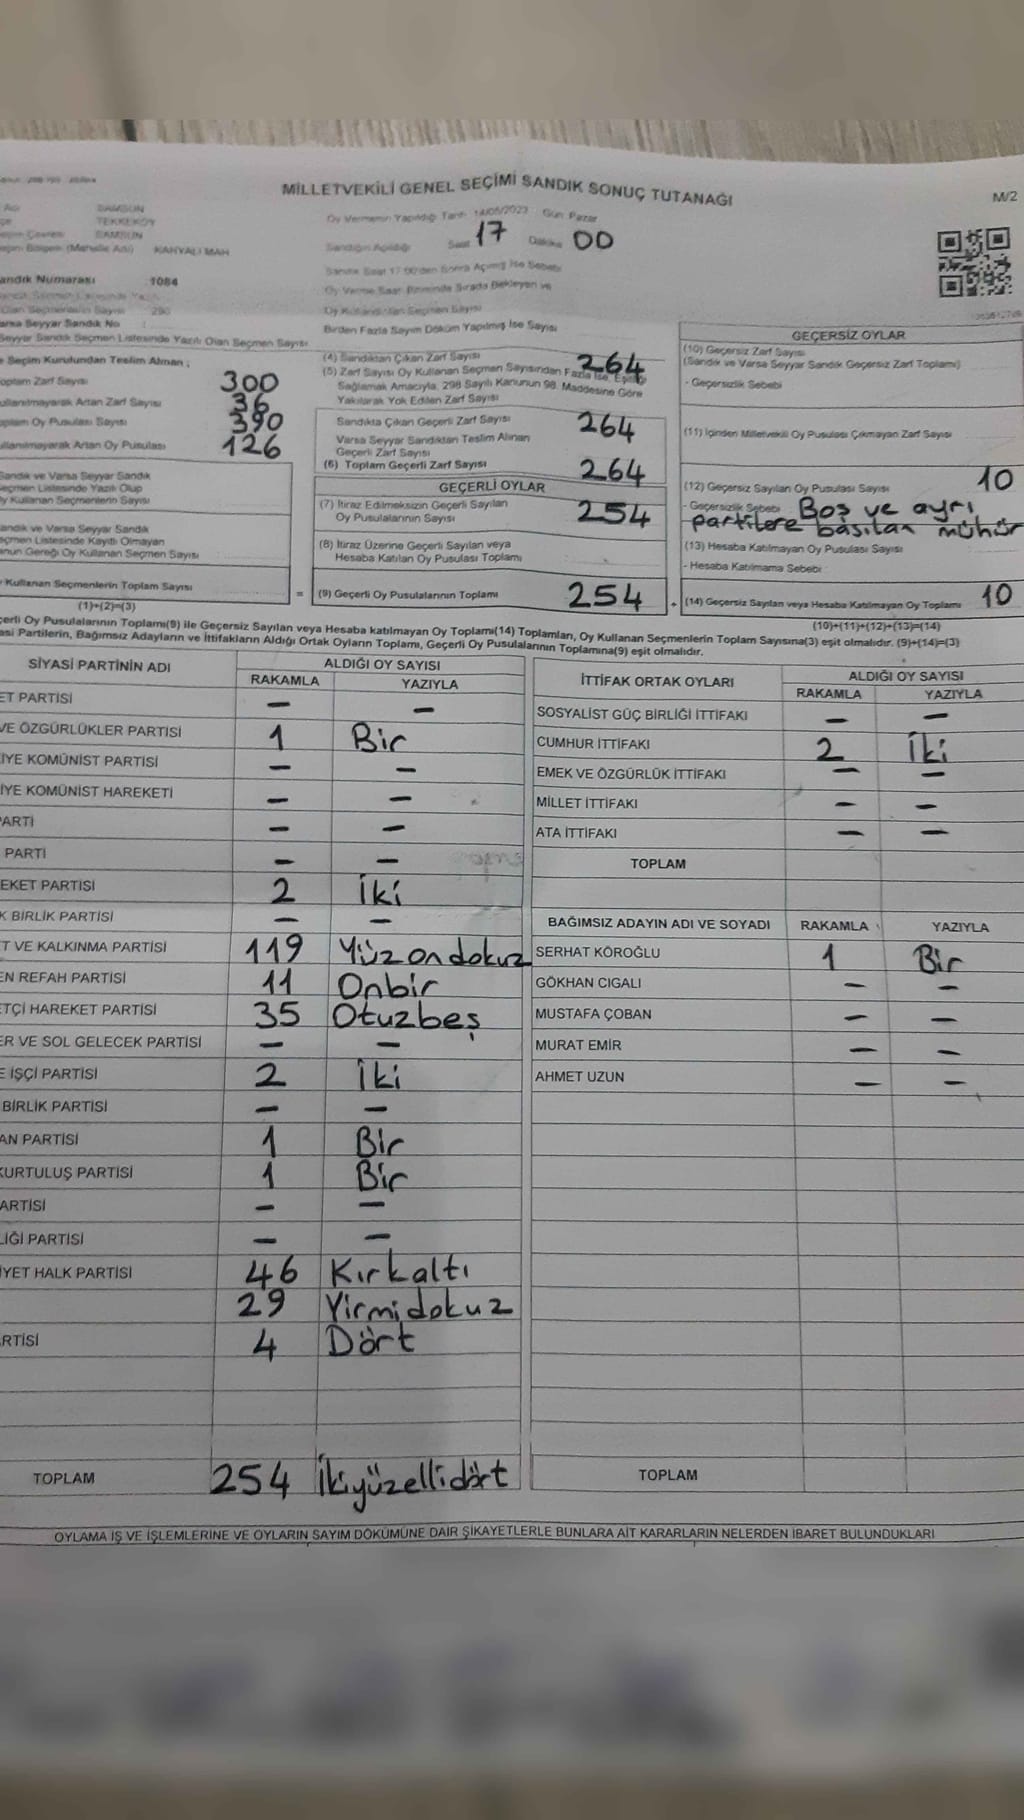 MİLLETVEKİLİ GENEL SEÇİMİ SANDIK SONUÇ TUTANAĞI
M/2
SAMSUN
TEKKEKÖY
SAMSUN
(Mahalle Adı) KAHYALI MAH
Oy Vermenin Yapıldığı Tarih 14/05/2023 Gün Pazar
Sandığın Açıldığı Saat 17 Dakika 00
Sandık Saat 17:00'den Sonra Açılmış İse Sebebi
Oy Verme Saat Bitiminde Sırada Bekleyen ve
Oy Kullandırılan Seçmen Sayısı
Birden Fazla Sayım Döküm Yapılmış İse Sayısı
andık Numarası 1084
Olan Seçmenlerin Sayısı 290
arsa Seyyar Sandık No :
Seyyar Sandık Seçmen Listesinde Yazılı Olan Seçmen Sayısı
e Seçim Kurulundan Teslim Alınan ;
oplam Zarf Sayısı 300
ullanılmayarak Artan Zarf Sayısı 36
oplam Oy Pusulası Sayısı 390
ullanılmayarak Artan Oy Pusulası 126
Sandık ve Varsa Seyyar Sandık
Seçmen Listesinde Yazılı Olup
Oy Kullanan Seçmenlerin Sayısı
andık ve Varsa Seyyar Sandık
eçmen Listesinde Kayıtlı Olmayan
anun Gereği Oy Kullanan Seçmen Sayısı
Kullanan Seçmenlerin Toplam Sayısı
(1)+(2)=(3)
(4) Sandıktan Çıkan Zarf Sayısı 264
(5) Zarf Sayısı Oy Kullanan Seçmen Sayısından Fazla İse, Eşitliği
Sağlamak Amacıyla, 298 Sayılı Kanunun 98. Maddesine Göre
Yakılarak Yok Edilen Zarf Sayısı
Sandıkta Çıkan Geçerli Zarf Sayısı 264
Varsa Seyyar Sandıktan Teslim Alınan
Geçerli Zarf Sayısı
(6) Toplam Geçerli Zarf Sayısı 264
GEÇERLİ OYLAR
(7) İtiraz Edilmeksizin Geçerli Sayılan
Oy Pusulalarının Sayısı 254
(8) İtiraz Üzerine Geçerli Sayılan veya
Hesaba Katılan Oy Pusulası Toplamı
= (9) Geçerli Oy Pusulalarının Toplamı 254 +
GEÇERSİZ OYLAR
(10) Geçersiz Zarf Sayısı
(Sandık ve Varsa Seyyar Sandık Geçersiz Zarf Toplamı)
- Geçersizlik Sebebi
(11) İçinden Milletvekili Oy Pusulası Çıkmayan Zarf Sayısı
(12) Geçersiz Sayılan Oy Pusulası Sayısı 10
- Geçersizlik Sebebi Boş ve ayrı
partilere basılan mühür
(13) Hesaba Katılmayan Oy Pusulası Sayısı
- Hesaba Katılmama Sebebi
(14) Geçersiz Sayılan veya Hesaba Katılmayan Oy Toplamı 10
(10)+(11)+(12)+(13)=(14)
çerli Oy Pusulalarının Toplamı(9) ile Geçersiz Sayılan veya Hesaba katılmayan Oy Toplamı(14) Toplamları, Oy Kullanan Seçmenlerin Toplam Sayısına(3) eşit olmalıdır. (9)+(14)=(3)
asi Partilerin, Bağımsız Adayların ve İttifakların Aldığı Ortak Oyların Toplamı, Geçerli Oy Pusulalarının Toplamına(9) eşit olmalıdır.
SİYASİ PARTİNİN ADI ALDIĞI OY SAYISI
RAKAMLA YAZIYLA
ET PARTİSİ - -
VE ÖZGÜRLÜKLER PARTİSİ 1 Bir
İYE KOMÜNİST PARTİSİ - -
İYE KOMÜNİST HAREKETİ - -
PARTİ - -
PARTİ - -
EKET PARTİSİ 2 İki
K BİRLİK PARTİSİ - -
T VE KALKINMA PARTİSİ 119 Yüzondokuz
EN REFAH PARTİSİ 11 Onbir
ETÇİ HAREKET PARTİSİ 35 Otuzbeş
ER VE SOL GELECEK PARTİSİ - -
E İŞÇİ PARTİSİ 2 İki
BİRLİK PARTİSİ - -
AN PARTİSİ 1 Bir
KURTULUŞ PARTİSİ 1 Bir
ARTİSİ - -
LİĞİ PARTİSİ - -
İYET HALK PARTİSİ 46 Kırkaltı
29 Yirmidokuz
RTİSİ 4 Dört
TOPLAM 254 İkiyüzellidört
İTTİFAK ORTAK OYLARI ALDIĞI OY SAYISI
RAKAMLA YAZIYLA
SOSYALİST GÜÇ BİRLİĞİ İTTİFAKI - -
CUMHUR İTTİFAKI 2 İki
EMEK VE ÖZGÜRLÜK İTTİFAKI - -
MİLLET İTTİFAKI - -
ATA İTTİFAKI - -
TOPLAM
BAĞIMSIZ ADAYIN ADI VE SOYADI RAKAMLA YAZIYLA
SERHAT KÖROĞLU 1 Bir
GÖKHAN CIGALI - -
MUSTAFA ÇOBAN - -
MURAT EMİR - -
AHMET UZUN - -
TOPLAM
OYLAMA İŞ VE İŞLEMLERİNE VE OYLARIN SAYIM DÖKÜMÜNE DAİR ŞİKAYETLERLE BUNLARA AİT KARARLARIN NELERDEN İBARET BULUNDUKLARI